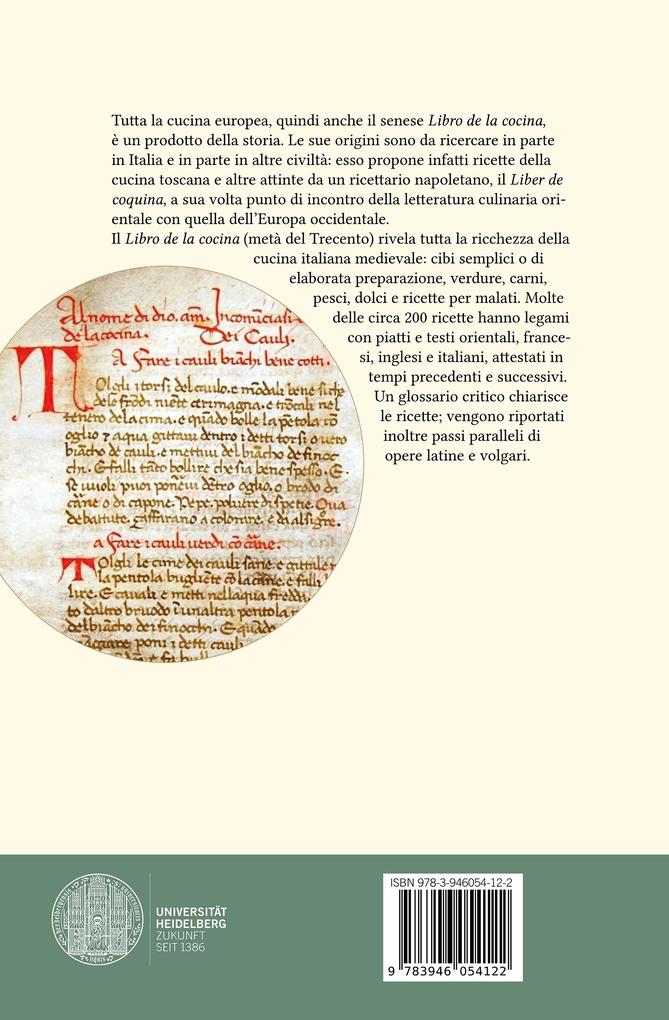 Tutta la cucina europea, quindi anche il senese Libro de la cocina,
è un prodotto della storia. Le sue origini sono da ricercare in parte
in Italia e in parte in altre civiltà: esso propone infatti ricette della
cucina toscana e altre attinte da un ricettario napoletano, il Liber de
coquina, a sua volta punto di incontro della letteratura culinaria ori-
entale con quella dell’Europa occidentale.
Il Libro de la cocina (metà del Trecento) rivela tutta la ricchezza della
cucina italiana medievale: cibi semplici o di
elaborata preparazione, verdure, carni,
pesci, dolci e ricette per malati. Molte
delle circa 200 ricette hanno legami
con piatti e testi orientali, france-
si, inglesi e italiani, attestati in
tempi precedenti e successivi.
Un glossario critico chiarisce
le ricette; vengono riportati
inoltre passi paralleli di
opere latine e volgari.
Al nome di dio. am̃. Incom̃ciasi
de la cocina. Dei Cauli.
A fare i cauli biãchi bene cotti.
Tolgli i torsi del caulo. e mõdali bene
de le frõdi niẽte
tenero de la cima. e quãdo bolle la pẽtola cõ
oglio ⁊ aqua gittavi dentro i detti torsi
biãcho de cauli. e mettivi del biãcho de finoc
chi. E falli tãto bollire che sia bene spesso. E
se vuoli puoi ponervi dẽtro oglio. o brodo di
cãne o di capone. Pepe. polvere di spetie. Ova
debattute. zaffarano a colorare. e dà al sigre.
a fare i cauli verdi cõ cãne.
Tolgli le cime dei cauli sane. e
la pentola bugliẽte cõ la cãne. e falli
lire. E cavali e metti nell aqua fredda.
to d altro bruodo ĩ un altra pentola
del biãcho dei finocchi. E quãdo
poni i detti cauli
UNIVERSITÄT
HEIDELBERG
ZUKUNFT
SEIT 1386
ISBN 978-3-946054-12-2
9 783946 054122